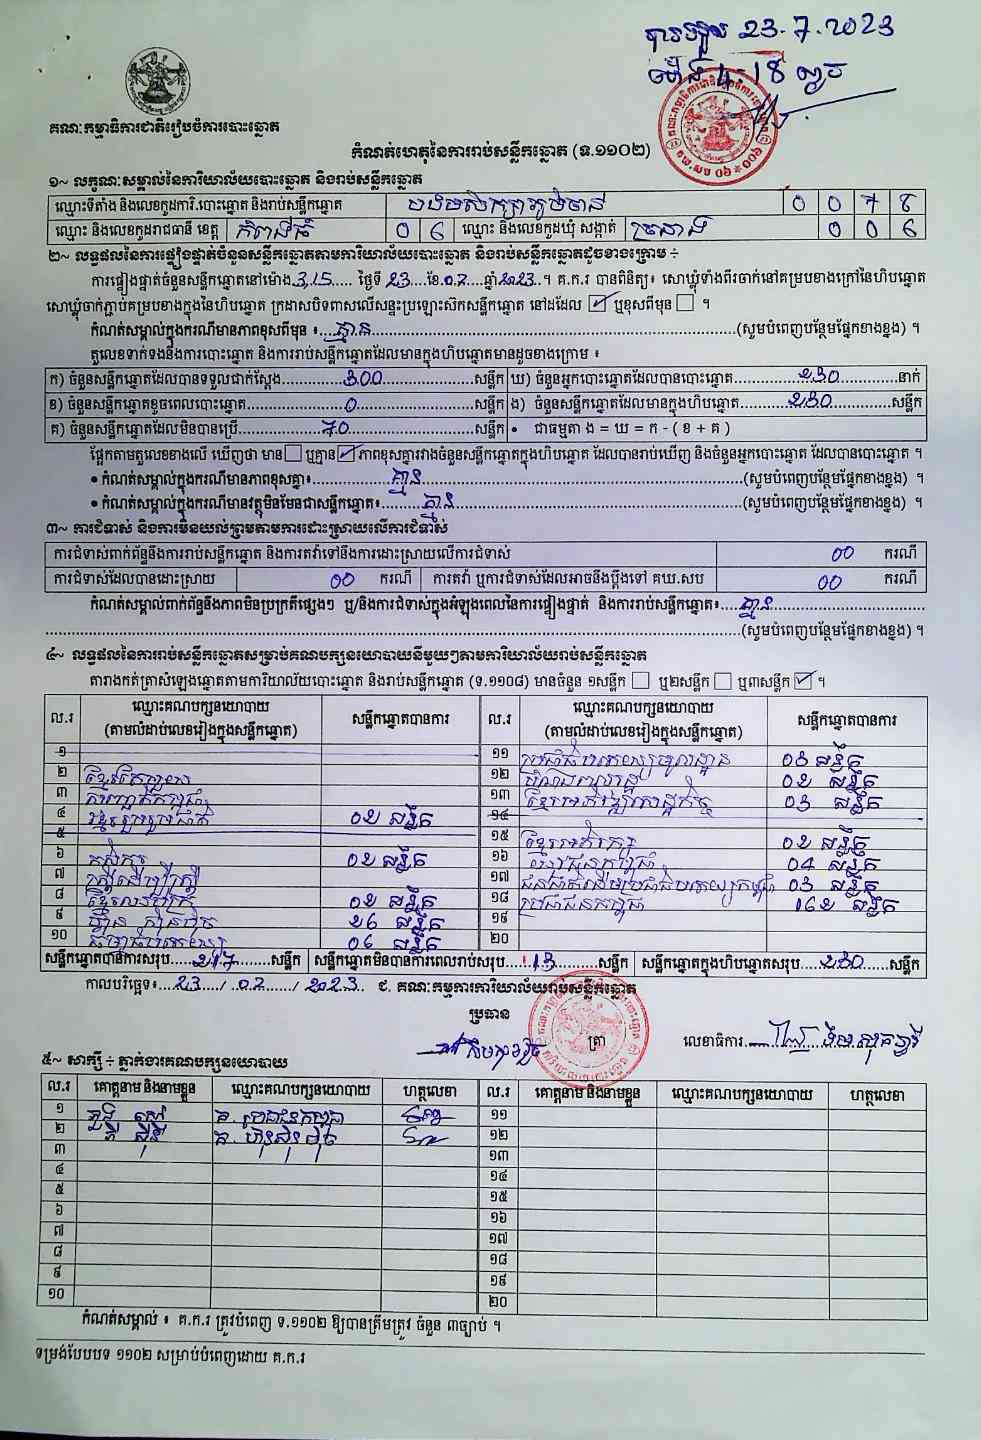 បានទទួល 23.7.2023
ម៉ោង 4:18 ល្ងាច
គណៈកម្មាធិការជាតិរៀបចំការបោះឆ្នោត
កំណត់ហេតុនៃការរាប់សន្លឹកឆ្នោត (ទ.១១០២)
១~ លក្ខណៈសម្គាល់នៃការិយាល័យបោះឆ្នោត និងរាប់សន្លឹកឆ្នោត
ឈ្មោះទីតាំង និងលេខកូដការិ.បោះឆ្នោត និងរាប់សន្លឹកឆ្នោត 0 0 7 8
ឈ្មោះ និងលេខកូដរាជធានី ខេត្ត កំពង់ធំ 0 6 ឈ្មោះ និងលេខកូដឃុំ សង្កាត់ 0 0 6
២~ លទ្ធផលនៃការផ្ទៀងផ្ទាត់ចំនួនសន្លឹកឆ្នោតតាមការិយាល័យបោះឆ្នោត និងរាប់សន្លឹកឆ្នោតដូចខាងក្រោម ÷
ការផ្ទៀងផ្ទាត់ចំនួនសន្លឹកឆ្នោតនៅម៉ោង 3,15 ថ្ងៃទី 23 ខែ 07 ឆ្នាំ 2023 ។ គ.ក.រ បានពិនិត្យ៖ សោឃ្លុំទាំងពីរចាក់នៅគម្របខាងក្រៅនៃហិបឆ្នោត
សោឃ្លុំចាក់ភ្ជាប់គម្របខាងក្នុងនៃហិបឆ្នោត ក្រដាសបិទពាសលើសន្ទះប្រឡោះស៊កសន្លឹកឆ្នោត នៅដដែល ✓ ឬខុសពីមុន ។
កំណត់សម្គាល់ក្នុងករណីមានភាពខុសពីមុន ៖ គ្មាន (សូមបំពេញបន្ថែមផ្នែកខាងខ្នង) ។
តួលេខទាក់ទងនឹងការបោះឆ្នោត និងការរាប់សន្លឹកឆ្នោតដែលមានក្នុងហិបឆ្នោតមានដូចខាងក្រោម ៖
ក) ចំនួនសន្លឹកឆ្នោតដែលបានទទួលជាក់ស្តែង 300 សន្លឹក ឃ) ចំនួនអ្នកបោះឆ្នោតដែលបានបោះឆ្នោត 230 នាក់
ខ) ចំនួនសន្លឹកឆ្នោតខូចពេលបោះឆ្នោត 0 សន្លឹក ង) ចំនួនសន្លឹកឆ្នោតដែលមានក្នុងហិបឆ្នោត 230 សន្លឹក
គ) ចំនួនសន្លឹកឆ្នោតដែលមិនបានប្រើ 70 សន្លឹក • ជាធម្មតា ង = ឃ = ក - ( ខ + គ )
ផ្អែកតាមតួលេខខាងលើ ឃើញថា មាន ឬគ្មាន ✓ ភាពខុសគ្នារវាងចំនួនសន្លឹកឆ្នោតក្នុងហិបឆ្នោត ដែលបានរាប់ឃើញ និងចំនួនអ្នកបោះឆ្នោត ដែលបានបោះឆ្នោត ។
• កំណត់សម្គាល់ក្នុងករណីមានភាពខុសគ្នា៖ គ្មាន (សូមបំពេញបន្ថែមផ្នែកខាងខ្នង) ។
• កំណត់សម្គាល់ក្នុងករណីមានវត្ថុមិនមែនជាសន្លឹកឆ្នោត៖ គ្មាន (សូមបំពេញបន្ថែមផ្នែកខាងខ្នង) ។
៣~ ការជំទាស់ និងការមិនយល់ព្រមតាមការដោះស្រាយលើការជំទាស់
ការជំទាស់ពាក់ព័ន្ធនឹងការរាប់សន្លឹកឆ្នោត និងការតវ៉ាទៅនឹងការដោះស្រាយលើការជំទាស់ 00 ករណី
ការជំទាស់ដែលបានដោះស្រាយ 00 ករណី ការតវ៉ា ឬការជំទាស់ដែលអាចនឹងប្តឹងទៅ គឃ.សប 00 ករណី
កំណត់សម្គាល់ពាក់ព័ន្ធនឹងភាពមិនប្រក្រតីផ្សេងៗ ឬ/និងការជំទាស់ក្នុងអំឡុងពេលនៃការផ្ទៀងផ្ទាត់ និងការរាប់សន្លឹកឆ្នោត៖ គ្មាន
(សូមបំពេញបន្ថែមផ្នែកខាងខ្នង) ។
៤~ លទ្ធផលនៃការរាប់សន្លឹកឆ្នោតសម្រាប់គណបក្សនយោបាយនីមួយៗតាមការិយាល័យរាប់សន្លឹកឆ្នោត
តារាងកត់ត្រាសំឡេងឆ្នោតតាមការិយាល័យបោះឆ្នោត និងរាប់សន្លឹកឆ្នោត (ទ.១១០៨) មានចំនួន ១សន្លឹក ឬ២សន្លឹក ឬ៣សន្លឹក ✓ ។
ល.រ ឈ្មោះគណបក្សនយោបាយ (តាមលំដាប់លេខរៀងក្នុងសន្លឹកឆ្នោត) សន្លឹកឆ្នោតបានការ ល.រ ឈ្មោះគណបក្សនយោបាយ (តាមលំដាប់លេខរៀងក្នុងសន្លឹកឆ្នោត) សន្លឹកឆ្នោតបានការ
១ ១១ សន្លឹក
២ ១២ 02 សន្លឹក
៣ ១៣ 03 សន្លឹក
៤ ខ្មែររួបរួមជាតិ 02 សន្លឹក ១៤
៥ ១៥ 02 សន្លឹក
៦ កសិករ 02 សន្លឹក ១៦ 04 សន្លឹក
៧ ១៧ 03 សន្លឹក
៨ 02 សន្លឹក ១៨ ប្រជាជនកម្ពុជា 162 សន្លឹក
៩ ហ៊្វុនស៊ិនប៉ិច 26 សន្លឹក ១៩
១០ 06 សន្លឹក ២០
សន្លឹកឆ្នោតបានការសរុប 217 សន្លឹក សន្លឹកឆ្នោតមិនបានការពេលរាប់សរុប 13 សន្លឹក សន្លឹកឆ្នោតក្នុងហិបឆ្នោតសរុប 230 សន្លឹក
កាលបរិច្ឆេទ៖ 23 / 07 / 2023 ៩. គណៈកម្មការការិយាល័យរាប់សន្លឹកឆ្នោត
ប្រធាន
ត្រា
លេខាធិការ
៥~ សាក្សី ÷ ភ្នាក់ងារគណបក្សនយោបាយ
ល.រ គោត្តនាម និងនាមខ្លួន ឈ្មោះគណបក្សនយោបាយ ហត្ថលេខា ល.រ គោត្តនាម និងនាមខ្លួន ឈ្មោះគណបក្សនយោបាយ ហត្ថលេខា
១ គ. ប្រជាជនកម្ពុជា ១១
២ គ. ហ៊្វុនស៊ិនប៉ិច ១២
៣ ១៣
៤ ១៤
៥ ១៥
៦ ១៦
៧ ១៧
៨ ១៨
៩ ១៩
១០ ២០
កំណត់សម្គាល់ ៖ គ.ក.រ ត្រូវបំពេញ ទ.១១០២ ឱ្យបានត្រឹមត្រូវ ចំនួន ៣ច្បាប់ ។
ទម្រង់បែបបទ ១១០២ សម្រាប់បំពេញដោយ គ.ក.រ